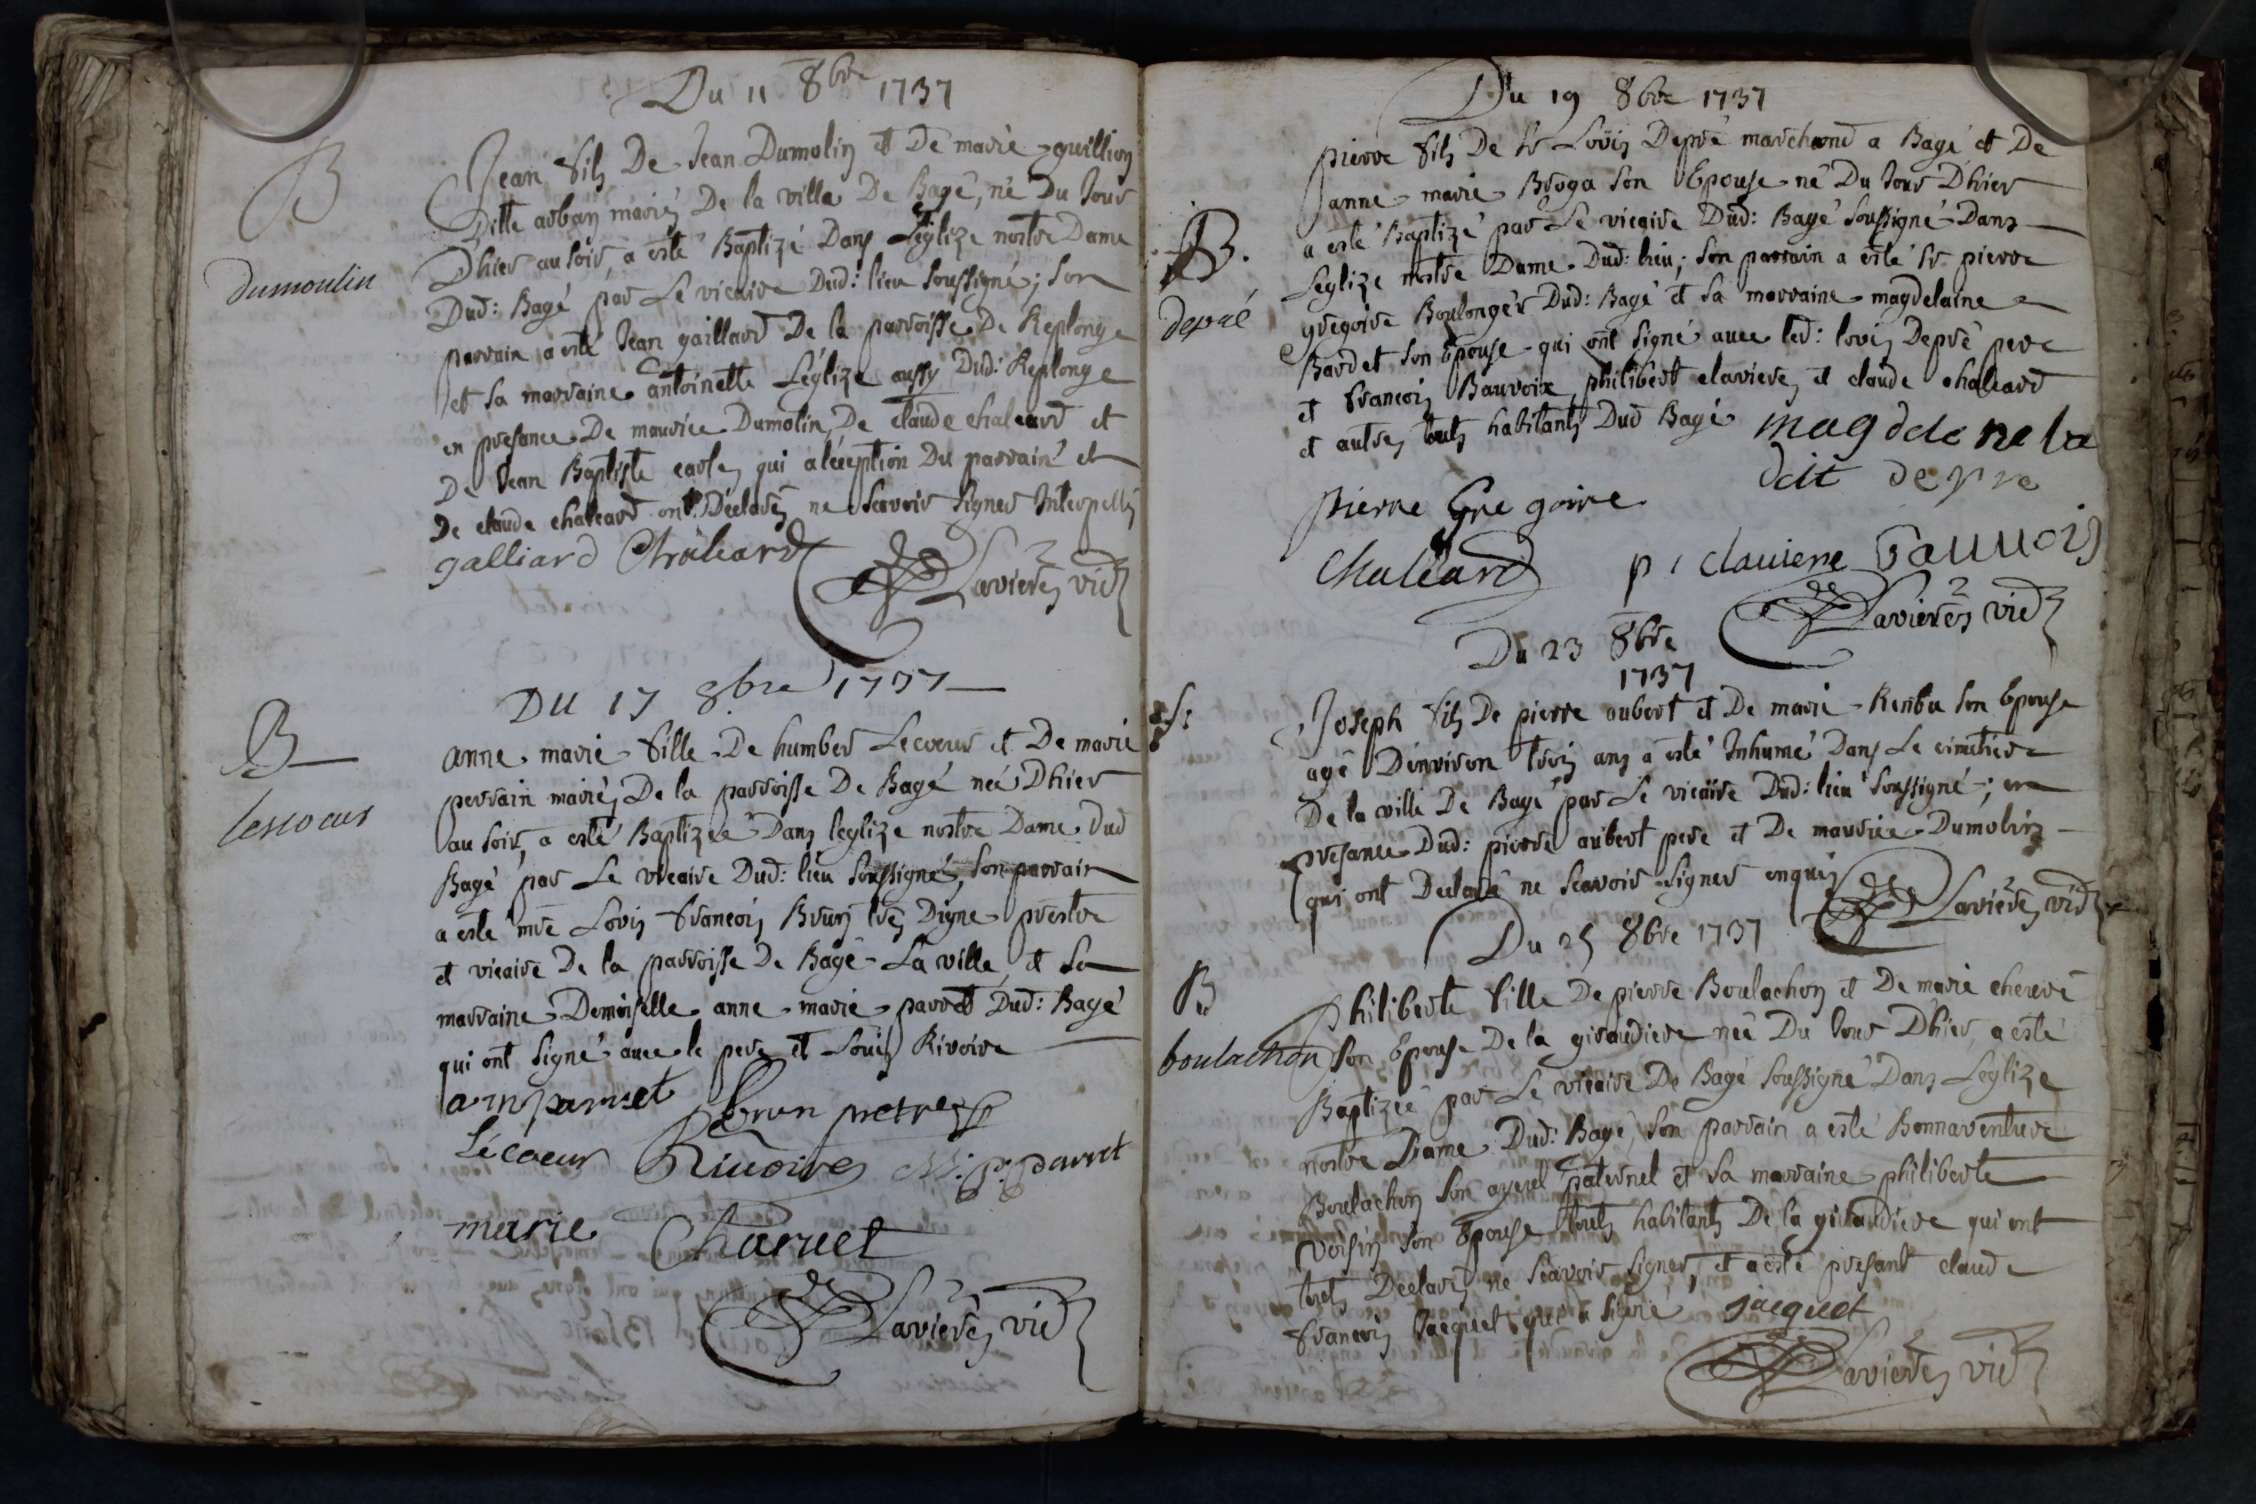 Du 11 8bre 1737
B
Jean fils De Jean Dumolin et De marie guillion
Ditte arban mariés De la ville De Bagé, né Du Jour
Dhier au soir, a esté Baptizé Dans Léglize nostre Dame
dumoulin
Dud: Bagé par Le vicaire Dud: lieu soussigné; son
parrain a esté Jean gaillard De la parroisse De Replonge
et sa marraine antoinette Léglize aussy Dud: Replonge
en presance De maurice Dumolin, De claude chaleard et
De Jean Baptiste carles qui a léxeption Du parrain et
De claude chaleard ont Déclarés ne scavoir signer Interpellés
galliard Chaleard Lavieres vic
DU 17 8bre 1737
B
anne marie fille De humber Lecoeur et De marie
perrain mariés De la parroisse De Bagé neé Dhier
lescoeur
au soir, a esté Baptizeé Dans leglize nostre Dame dud
Bagé par Le vicaire Dud: lieu soussigné, son parrain
a esté mre Lovis francois Brun tres Digne prestre
et vicaire De la parroisse De Bagé La ville, et sa
marraine Demoiselle anne marie parret Dud: Bagé
qui ont signé avec le pere et Louis Rivoire
a m parret Brun pretre
Lécoeur Rivoire M: p: parret
marie Charvet
Lavieres vic
Du 19 8bre 1737
pierre fils De Sr Lovis Depré marchand a Bagé et De
anne marie Broga son Epouse né Du Jour Dhier
B.
a esté Baptizé par Le vicaire Dud: Bagé soussigné Dans
Leglize nostre Dame Dud: lieu; son parrain a esté Sr pierre
depré
gregoire Boulonger Dud: Bagé et sa marraine magdelaine
Bardet son Epouse qui ont signé avec led: lovis Depré pere
et francois Bauvoix, philibert clavieres et claude chaleard
et autres touts habitants Dud Bagé magddelene ba
deit depre
pierre Gregoire
Chaleard p: claviere Bauvois
Lavieres vic
Du 23 8bre
1737
S:
Joseph fils De pierre aubert et De marie Renba son Epouse
agé Dénviron trois ans a esté Inhumé Dans Le cimetiére
De la ville De Bagé par Le vicaire Dud: lieu soussigné; en
presance Dud: pierre aubert pere et De maurice Dumolin
qui ont Declaré ne scavoir signer enquis Lavieres vic
Du 25 8bre 1737
B
Philiberte fille De pierre Boulachon et De marie chevré
boulachon
son Epouse De la giraudiere neé Du Jour Dhier, a esté
Baptizeé par Le vicaire De Bagé soussigné Dans Léglize
nostre Dame Dud: Bagé, son parrain a esté Bonnaventure
Boulachon son ayeul paternel et sa marraine philiberte
Voisin son Epouse touts habitants De la giraudiere qui ont
touts Declarés ne scavoir signer, et a esté presant claude
francois Jacquet qui a signé jacquet
Lavieres vic